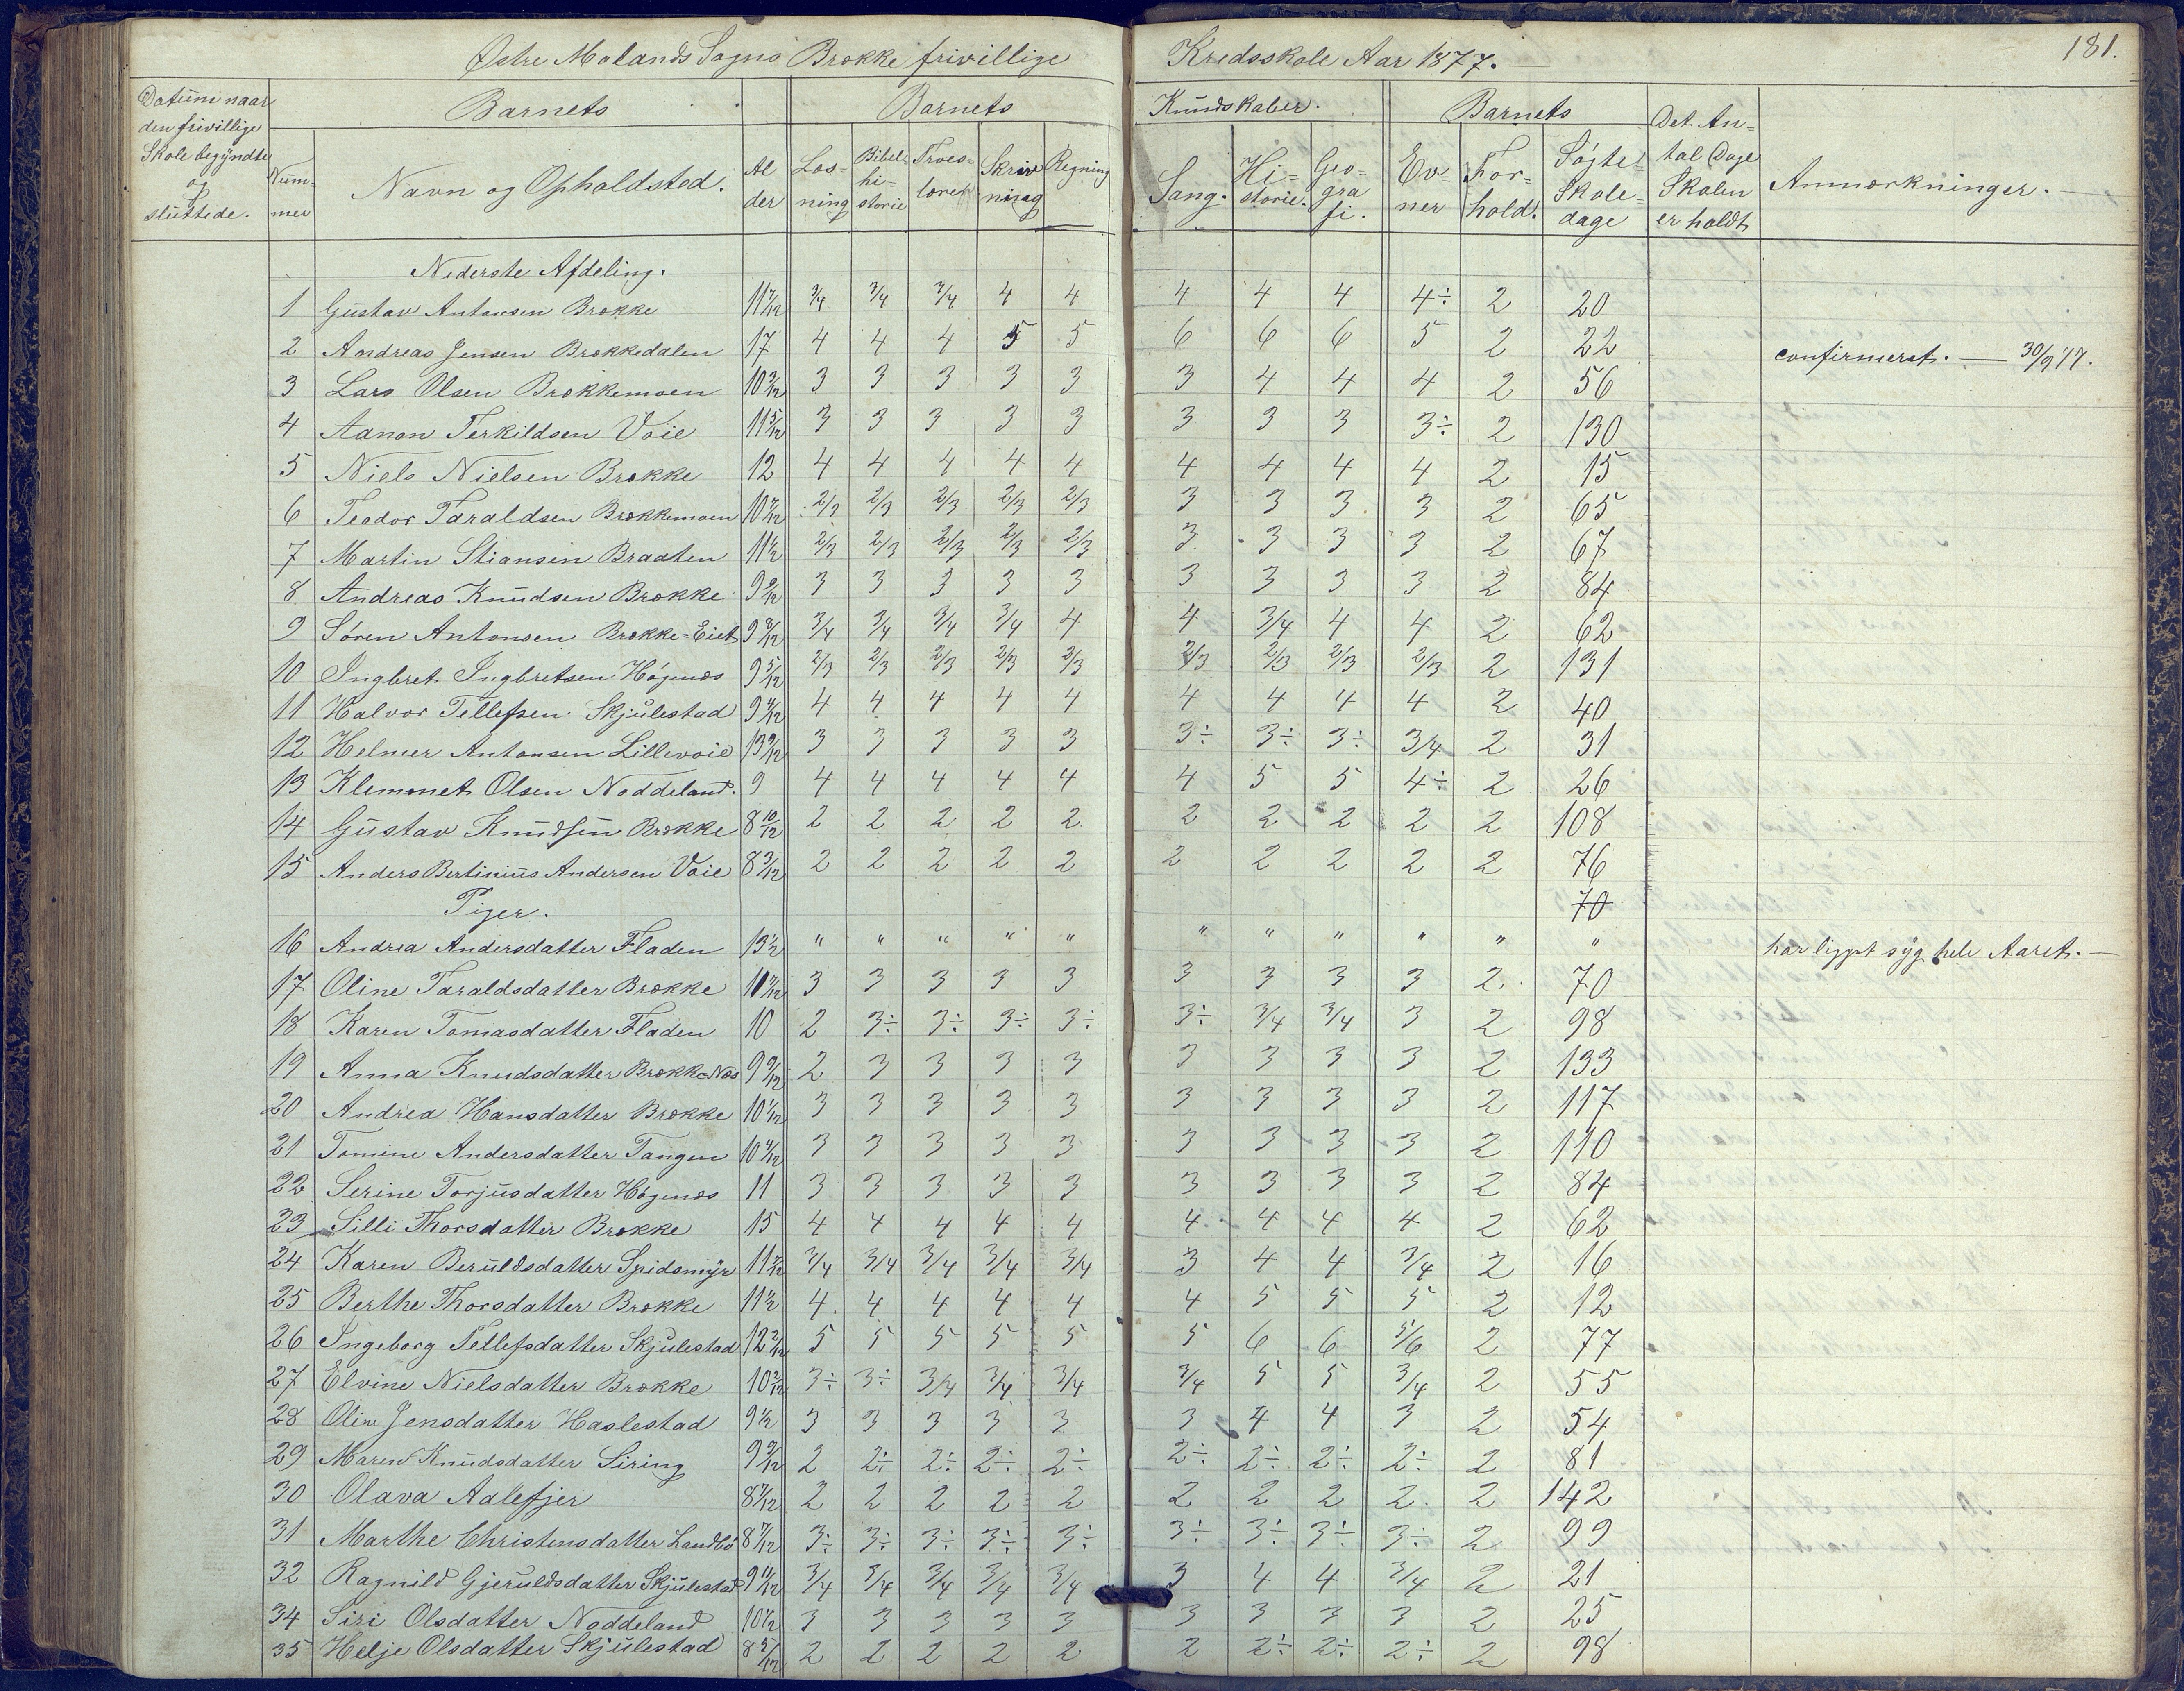 Østre Molands Sogns Brække frivillige Kredsskole Aar 1877. 181.
Datum naar den frivillige Skole begyndte og sluttede. Barnets Barnets Kundskaber. Barnets Det Antal Dage Skolen er holdt Anmærkninger.
Nummer Navn og Opholdsted. Alder Læsning Bibelhistorie Troeslæren Skrivning Regning Sang. Historie. Geografi. Evner Forhold. Søgte Skoledage
Nederste Afdeling.
1 Gustav Antonsen Brække 11 7/12 3/4 3/4 3/4 4 4 4 4 4 4÷ 2 20
2 Andreas Jensen Brækkedalen 17 4 4 4 5 5 6 6 6 5 2 22 confirmeret. — 30/9 77.
3 Lars Olsen Brækkemoen 10 3/12 3 3 3 3 3 3 4 4 4 2 56
4 Aanon Terkildsen Voie 11 5/12 3 3 3 3 3 3 3 3 3÷ 2 130
5 Niels Nielsen Brække 12 4 4 4 4 4 4 4 4 4 2 15
6 Teodor Taraldsen Brækkemoen 10 7/12 2/3 2/3 2/3 2/3 2/3 3 3 3 3 2 65
7 Martin Stiansen Braaten 11 1/2 2/3 2/3 2/3 2/3 2/3 3 3 3 3 2 67
8 Andreas Knudsen Brække 9 9/12 3 3 3 3 3 3 3 3 3 2 84
9 Søren Antonsen Brække-Eiet 9 8/12 3/4 3/4 3/4 3/4 4 4 3/4 4 4 2 62
10 Ingbret Ingbretsen Høgnæs 9 5/12 2/3 2/3 2/3 2/3 2/3 2/3 2/3 2/3 2/3 2 131
11 Halvor Tellefsen Skjulestad 9 4/12 4 4 4 4 4 4 4 4 4 2 40
12 Helmer Antonsen Lillevoie 13 9/12 3 3 3 3 3 3÷ 3÷ 3÷ 3/4 2 31
13 Klemmet Olsen Noddeland. 9 4 4 4 4 4 4 5 5 4÷ 2 26
14 Gustav Knudsen Brække 8 10/12 2 2 2 2 2 2 2 2 2 2 108
15 Anders Bertinius Andersen Voie 8 3/12 2 2 2 2 2 2 2 2 2 2 76
Piger. 70
16 Andrea Andersdatter Fladen 13 1/2 " " " " " " " " " " " har ligget syg hele Aaret. —
17 Oline Taraldsdatter Brække 3 3 3 3 3 3 3 3 3 2 70
18 Karen Tomasdatter Fladen 10 2 3÷ 3÷ 3÷ 3÷ 3÷ 3/4 3/4 3 2 98
19 Anna Knudsdatter Brække-Næs 9 9/12 2 3 3 3 3 3 3 3 3 2 133
20 Andrea Hansdatter Brække 10 1/12 3 3 3 3 3 3 3 3 3 2 117
21 Tomine Andersdatter Tangen 10 4/12 3 3 3 3 3 3 3 3 3 2 110
22 Serine Torjusdatter Høgnæs 11 3 3 3 3 3 3 3 3 3 2 84
23 Silli Thorsdatter Brække 15 4 4 4 4 4 4 4 4 4 2 62
24 Karen Beruldsdatter Spidsmyr 3/4 3/4 3/4 3/4 3/4 3 4 4 3/4 2 16
25 Berthe Thorsdatter Brække 11 1/2 4 4 4 4 4 4 5 5 5 2 12
26 Ingeborg Tellefsdatter Skjulestad 12 2/12 5 5 5 5 5 5 6 6 5/6 2 77
27 Elvine Nielsdatter Brække 10 2/12 3÷ 3÷ 3/4 3/4 3/4 3/4 5 5 3/4 2 55
28 Oline Jensdatter Haslestad 9 1/2 3 3 3 3 3 3 4 4 3 2 54
29 Maren Knudsdatter Siring 9 9/12 2 2÷ 2÷ 2÷ 2÷ 2÷ 2÷ 2÷ 2÷ 2 81
30 Olava Aalefjer 8 7/12 2 2 2 2 2 2 2 2 2 2 142
31 Marthe Christensdatter Landbö 8 7/12 3÷ 3÷ 3÷ 3÷ 3÷ 3÷ 3÷ 3÷ 3÷ 2 99
32 Ragnild Gjeruldsdatter Skjulestad 9 11/12 3/4 3/4 3/4 3/4 3/4 3 4 4 3/4 2 21
34 Siri Olsdatter Noddeland 10 1/2 3 3 3 3 3 3 3 3 3 2 25
35 Helje Olsdatter Skjulestad 8 5/12 2 2 2 2 2 2 2÷ 2÷ 2÷ 2 98